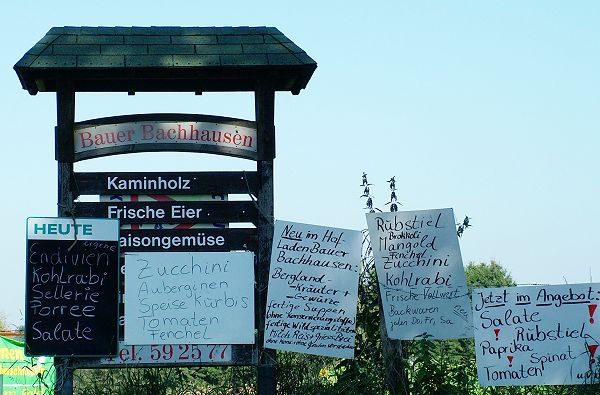 Bauer Bachhausen
Kaminholz
Frische Eier
aisongemüse
HEUTE
Endivien
eigene
Kohlrabi
Sellerie
Porree
Salate
Zucchini
Auberginen
Speise Kürbis
Tomaten
Fenchel
Tel. 592577
Neu im Hof-
Laden Bauer
Bachhausen:
Bergland-
Kräuter +
-Gewürze
fertige Suppen
(ohne Konservierungsstoffe)
fertige Wildspezialitäten
Milde Käse
Rübstiel
Brokkoli
Mangold
Fenchel
Zucchini
Kohlrabi
Frische Vollwert
Backwaren
jeden Di, Fr, Sa
Jetzt im Angebot:
Salate !
! Rübstiel
Paprika
! Spinat !
Tomaten